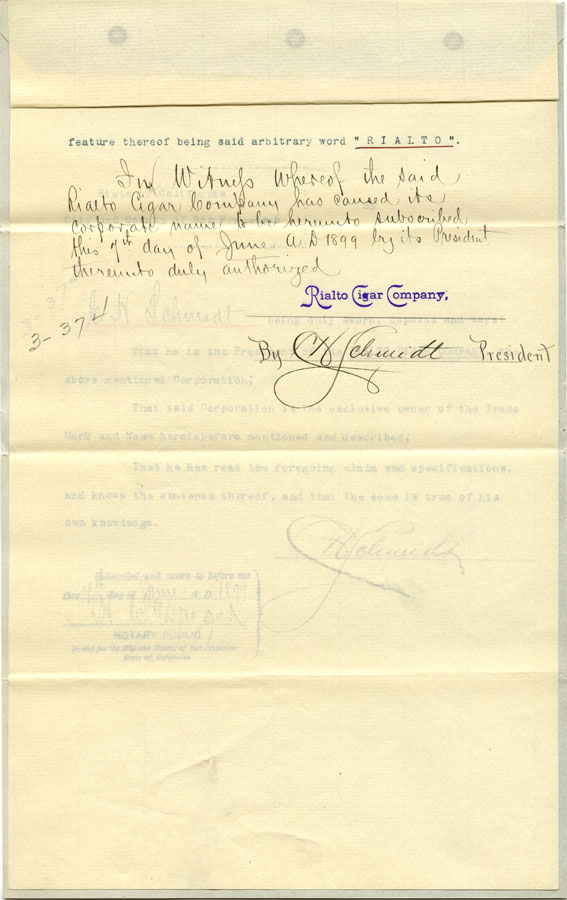 feature thereof being said arbitrary word "RIALTO".
In Witness Whereof the said
Rialto Cigar Company has caused its
corporate name to be hereunto subscribed
this 7th day of June A D 1899 by its President
thereunto duly authorized
Rialto Cigar Company,
3-374
By C H Schmidt President
Schmidt being duly sworn, deposes and says
That he is the President of the COMPANY
above mentioned Corporation;
That said Corporation is the exclusive owner of the Trade
Mark and Name hereinbefore mentioned and described;
That he has read the foregoing claim and specifications,
and knows the contents thereof, and that the same is true of his
own knowledge.
C H Schmidt
Subscribed and sworn to before me
this day of June A. D. 1899
NOTARY PUBLIC
In and for the City and County of San Francisco
State of California